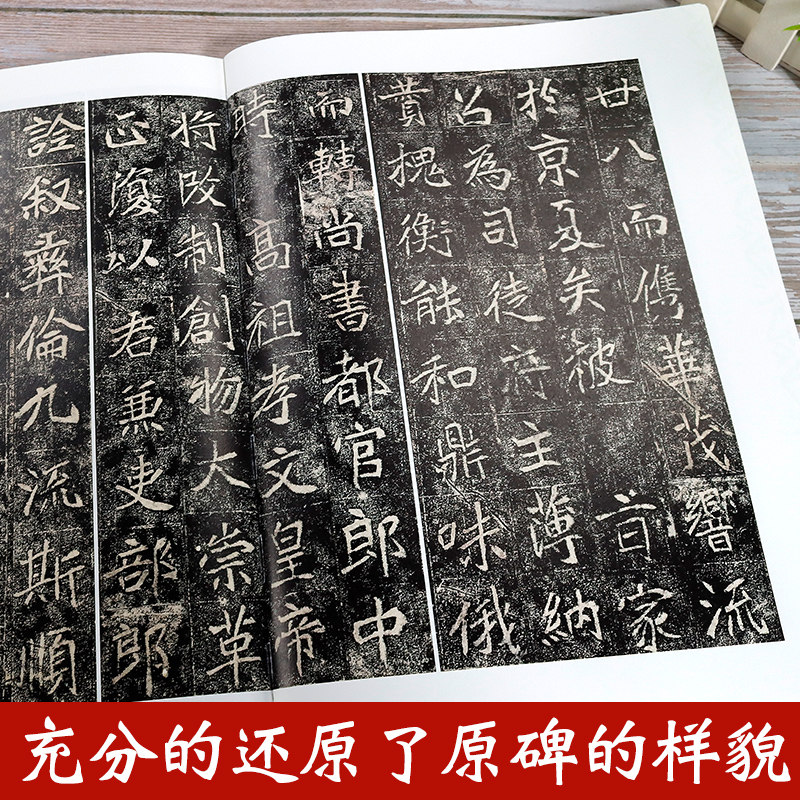 廿八而儁華茂響流
於京夏矣被旨家
召為司徒府主薄納
賛槐衡能和鼎味俄
而轉尚書都官郎中
時高祖孝文皇帝
将改制創物大崇革
正復以君兼吏部郎
詮叙彝倫九流斯順
充分的还原了原碑的样貌